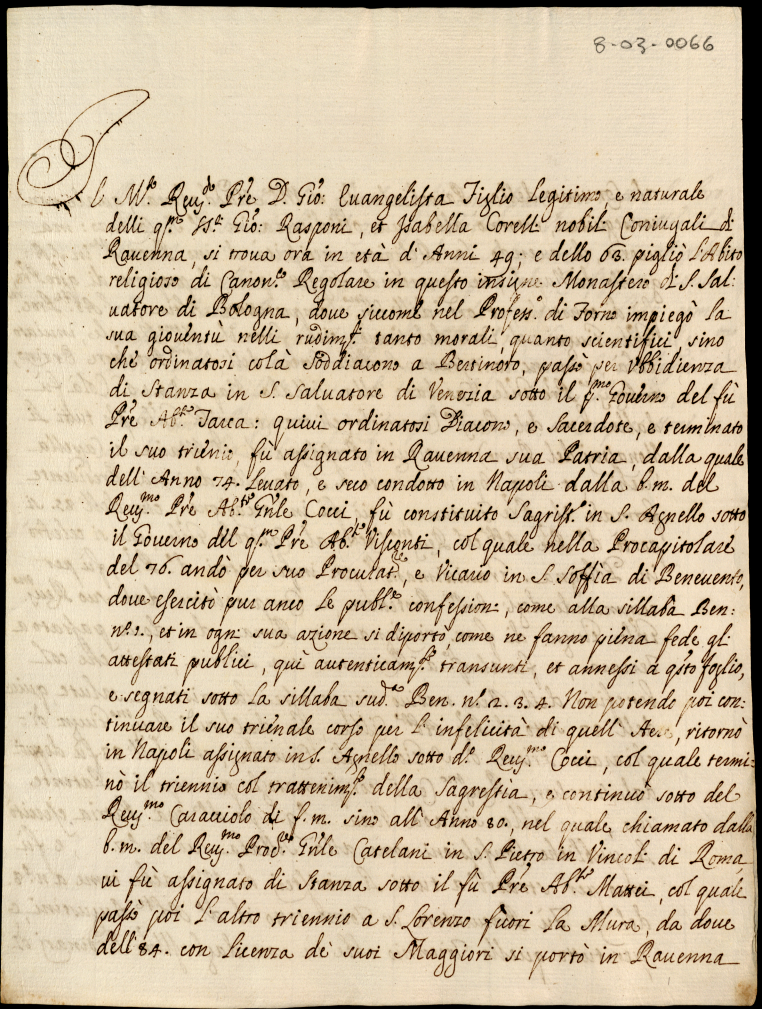 8-03-0066
Il M.to Reu.do Pre D. Gio: Euangelista Figlio legitimo, e naturale
delli q.m SS.ri Gio: Rasponi, et Isabella Corelli nobili Coniugali di
Rauenna, si troua ora in età d'Anni 49; e dello 63. pigliò l'Abito
religioso di Canon.co Regolare in questo insigne Monastero di S. Sal:
uatore di Bologna, doue siccome nel Profess.o di Forno impiegò la
sua giouentù nelli rudim.ti tanto morali, quanto scientifici, sino
che ordinatosi colà Soddiacono a Bertinoro, passò per Vbbidienza
di Stanza in S. Saluatore di Venezia sotto il q.mo Gouerno del fù
Pre Ab.te Tarca: quiui ordinatosi Diacono, e Sacerdote, e terminato
il suo trienio, fù assignato in Rauenna sua Patria, dalla quale
dell'Anno 74. Leuato, e seco condotto in Napoli dalla b.m. del
Reu.mo Pre Ab.te Gnle Cocci, fù constituito Sagrist.o in S. Agnello sotto
il Gouerno del q.m Pre Ab.te Visconti, col quale nella Procapitolare
del 76. andò per suo Proculat.re, e Vicario in S. Soffia di Beneuento,
doue esercitò pur anco le publ.e confessioni, come alla sillaba Ben:
n.o 1., et in ogni sua azione si diportò, come ne fanno piena fede gl'
attestati publici, quì autenticam.te transunti, et annessi a q.sto foglio,
e segnati sotto la sillaba sud.a Ben. n.o 2. 3. 4. Non potendo poi con:
tinuare il suo trienale corso per l'infelicità di quell'Aere, ritornò
in Napoli assignato in S. Agnello sotto d.o Reu.mo Cocci, col quale termi:
nò il triennio col trattenim.to della Sagrestia, e continuò sotto del
Reu.mo Caracciolo di f.m. sino all'Anno 80., nel quale chiamato dalla
b.m. del Reu.mo Proc.re Gnle Catelani in S. Pietro in Vincoli di Roma,
ui fù assignato di Stanza sotto il fù Pre Ab.te Mattei, col quale
passò poi l'altro triennio a S. Lorenzo fuori la Mura, da doue
dell'84. con licenza de suoi Maggiori si portò in Rauenna